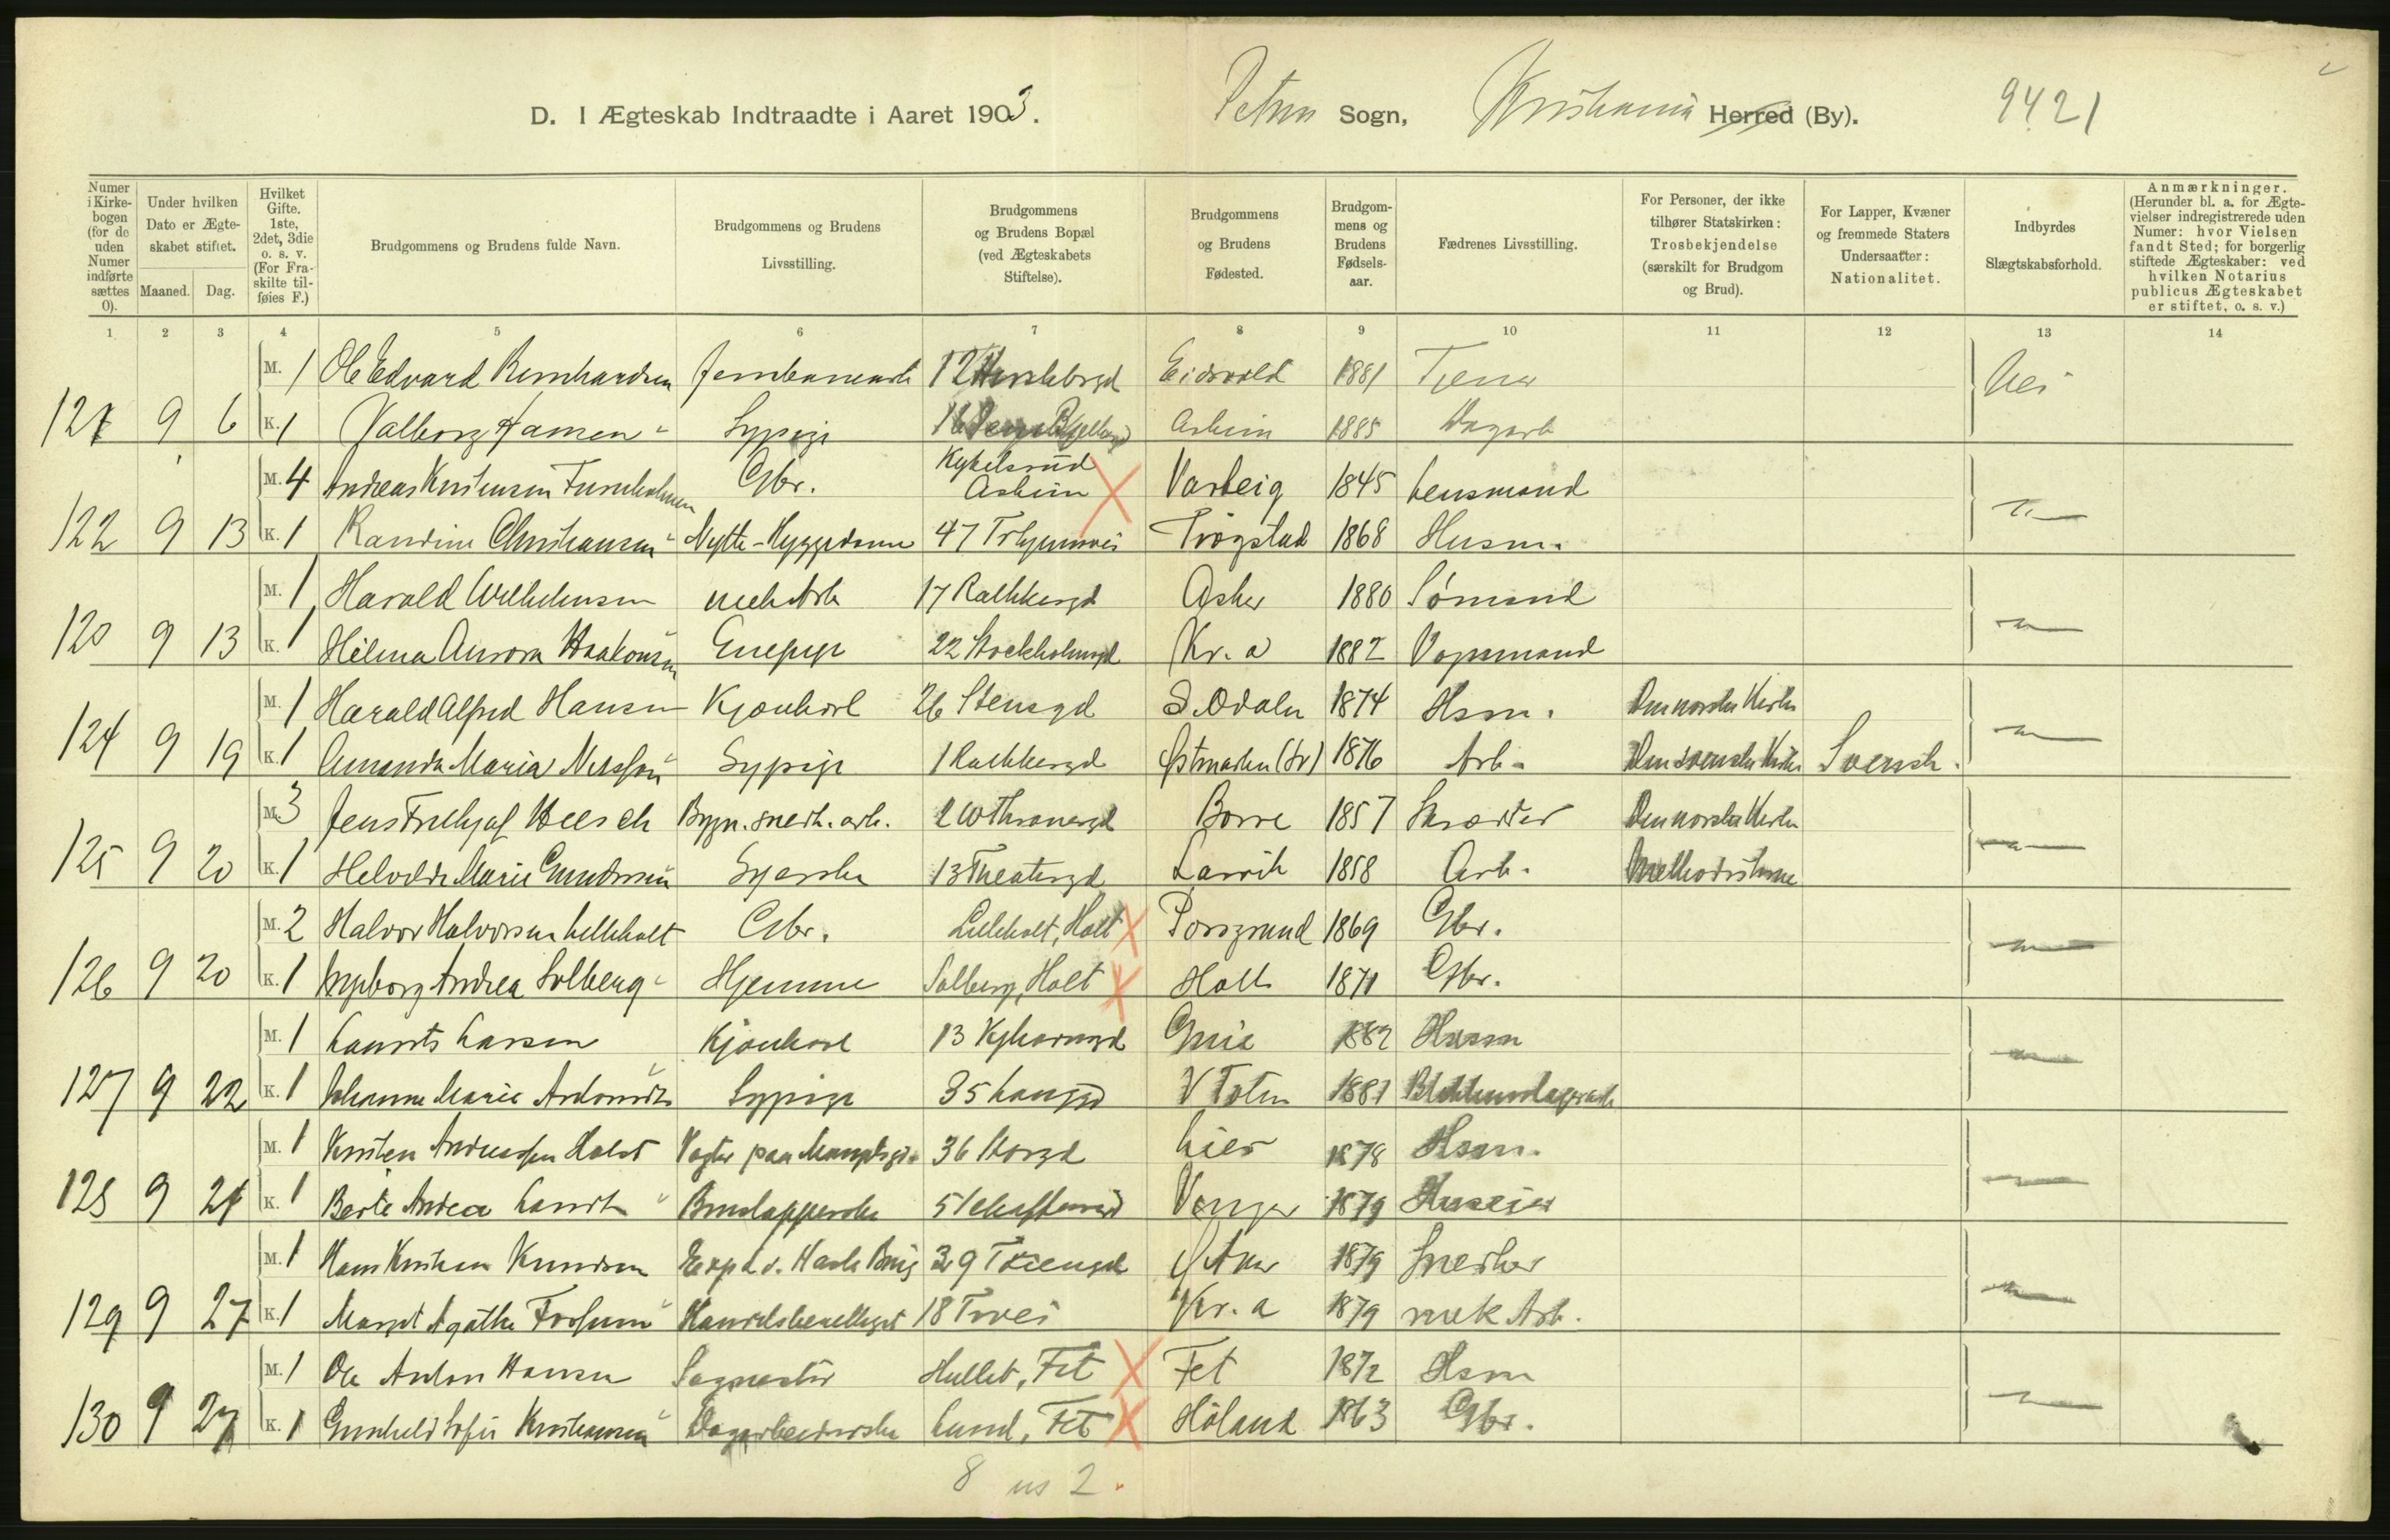 D. I Ægteskab Indtraadte i Aaret 1903. Petrus Sogn, Kristiania Herred (By). 9421
Numer i Kirkebogen (for de uden Numer indførte sættes 0).
Under hvilken Dato er Ægteskabet stiftet.
Maaned. Dag.
Hvilket Gifte. 1ste, 2det, 3die o. s. v. (For Fraskilte tilføies F.)
Brudgommens og Brudens fulde Navn.
Brudgommens og Brudens Livsstilling.
Brudgommens og Brudens Bopæl (ved Ægteskabets Stiftelse).
Brudgommens og Brudens Fødested.
Brudgommens og Brudens Fødselsaar.
Fædrenes Livsstilling.
For Personer, der ikke tilhører Statskirken: Trosbekjendelse (særskilt for Brudgom og Brud).
For Lapper, Kvæner og fremmede Staters Undersaatter: Nationalitet.
Indbyrdes Slægtskabsforhold.
Anmærkninger. (Herunder bl. a. for Ægtevielser indregistrerede uden Numer: hvor Vielsen fandt Sted; for borgerlig stiftede Ægteskaber: ved hvilken Notarius publicus Ægteskabet er stiftet, o. s. v.)
1 2 3 4 5 6 7 8 9 10 11 12 13 14
M. 1 Ole Edvard Bernhardsen Jernbanearb 12 Eidsvold 1881 Nei
121 9 6 K. 1 Valborg Hansen Sypige 16 Askim 1885 Dagarb
M. 4 Andreas Kristensen Gbr. Kykelsrud Askim Varteig 1845 Lensmand
122 9 13 K. 1 Randine Christiansen 47 Trøgstad 1868 Husm.
M. 1 Harald Wilhelmsen mek Arb 17 Rathkesgd Asker 1880 Sømand
120 9 13 K. 1 Hilma Aurora Haakonsen 22 Stockholmsgd Kr. a 1882 Vognmand
M. 1 Harald Alfred Hansen Kjørekarl 26 Stensgd S. Odalen 1874 Hsm. Den norske Kirke
124 9 19 K. 1 Amanda Maria Nilsson Sypige 1 Rathkesgd Østmarken (Sv) 1876 Arb. Den svenske Kirke Svensk.
M. 3 Jens Frithjof Heesch Bygn. snedk. arb. Thranesgd Borre 1857 Skrædder Den norske Kirke
125 9 20 K. 1 Helvilde Marie Gundersen Syerske 13 Theatergd Larvik 1858 Arb. Methodisterne
M. 2 Halvor Halvorsen Lilleholt Gbr. Lilleholt, Holt Porsgrund 1869 Gbr.
126 9 20 K. 1 Ingeborg Andrea Solberg Hjemme Solberg, Holt Holt 1871 Gbr.
M. 1 Laurits Larsen Kjørekarl 13 Grue 1882 Husm
127 9 22 K. 1 Johanne Marie Sypige 35 Langgd V Toten 1881
M. 1 Kristen Andreassen Holst Vagter paa 36 Storgd Lier 1878 Hsm.
128 9 21 K. 1 Berte Andrea Laurits 5 Vinger 1879 Huseier
M. 1 Hans Kristian Knudsen 39 Tøiengd Ø Aker 1879 Snedker
129 9 27 K. 1 Margit Agathe Fossum Handelsbetjent 18 Kr. a 1879 mek Arb.
M. 1 Ole Anton Hansen Sagmester Hullet, Fet Fet 1872 Hsm
130 9 27 K. 1 Gunhild Sofie Kristiansen Dagarbeiderske Lund, Fet Høland 1863 Gbr.
8 us 2.